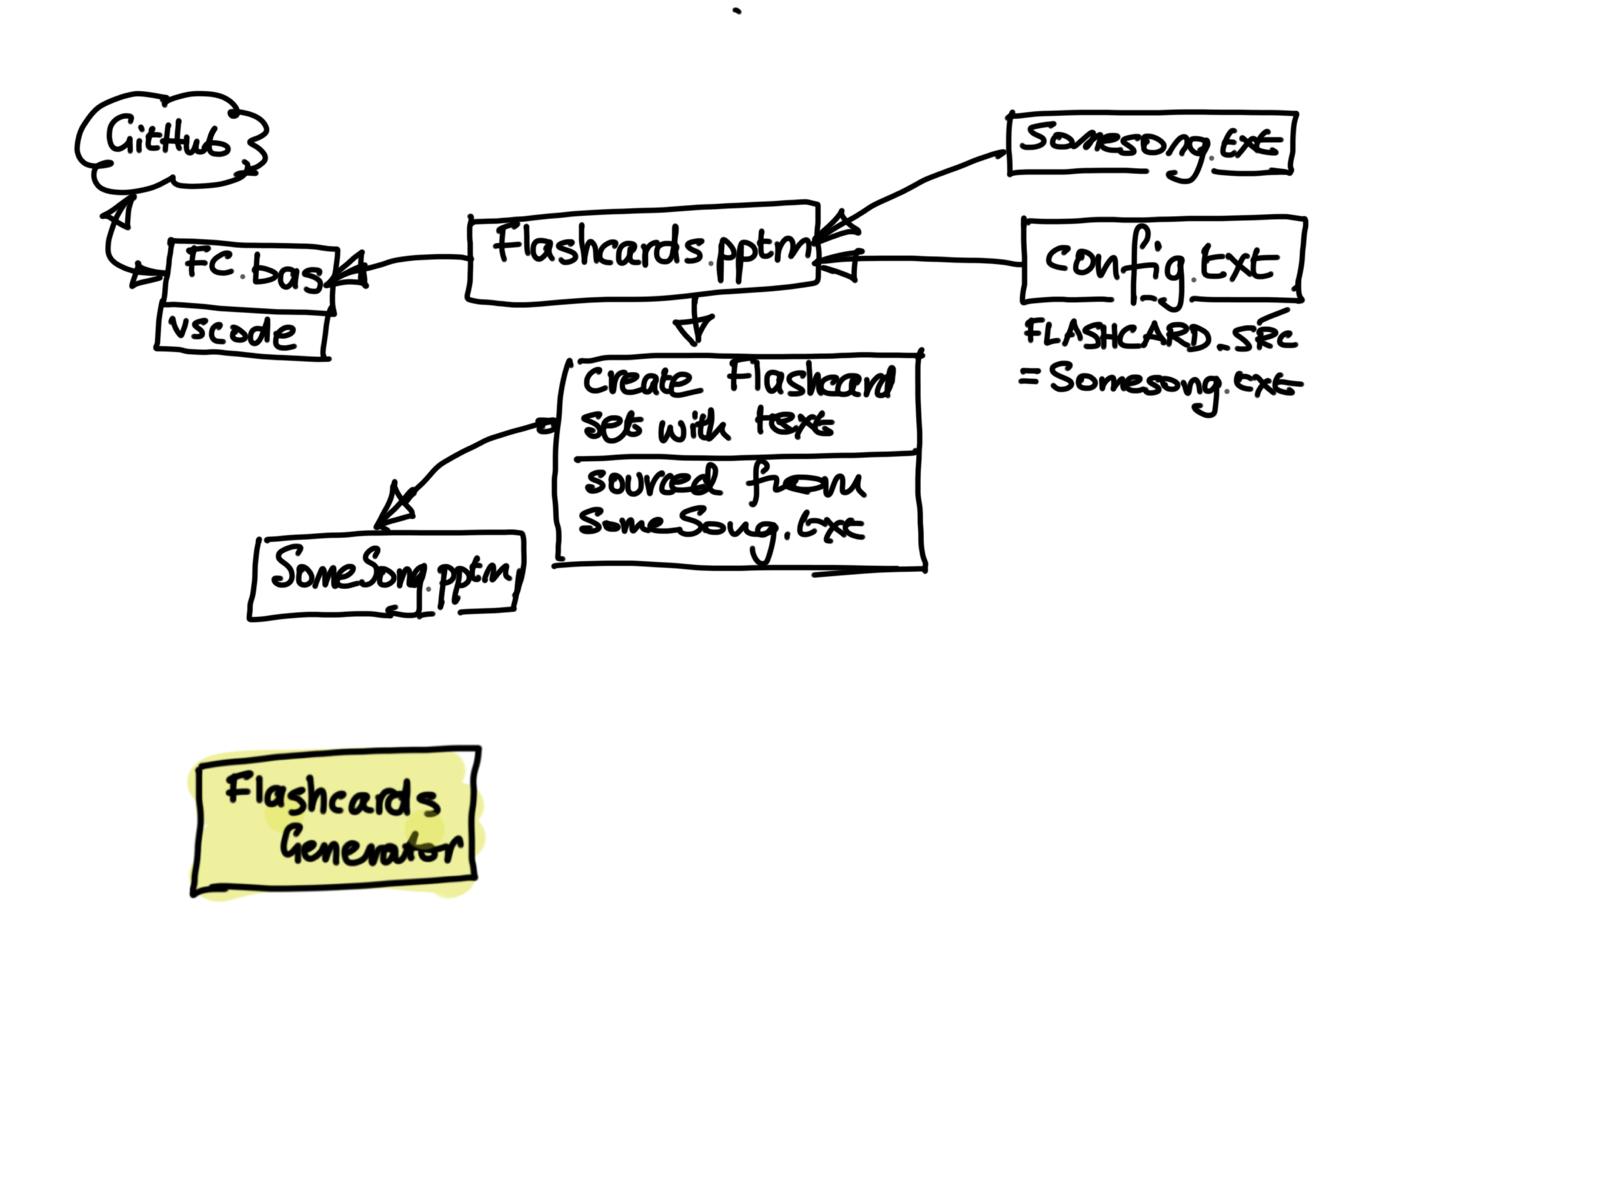 GitHub
Somesong.txt
Flashcards.pptm
config.txt
FC.bas
vscode
FLASHCARD_SRC
= Somesong.txt
create Flashcard
set with text
sourced from
SomeSong.txt
SomeSong.pptm
Flashcards
Generator